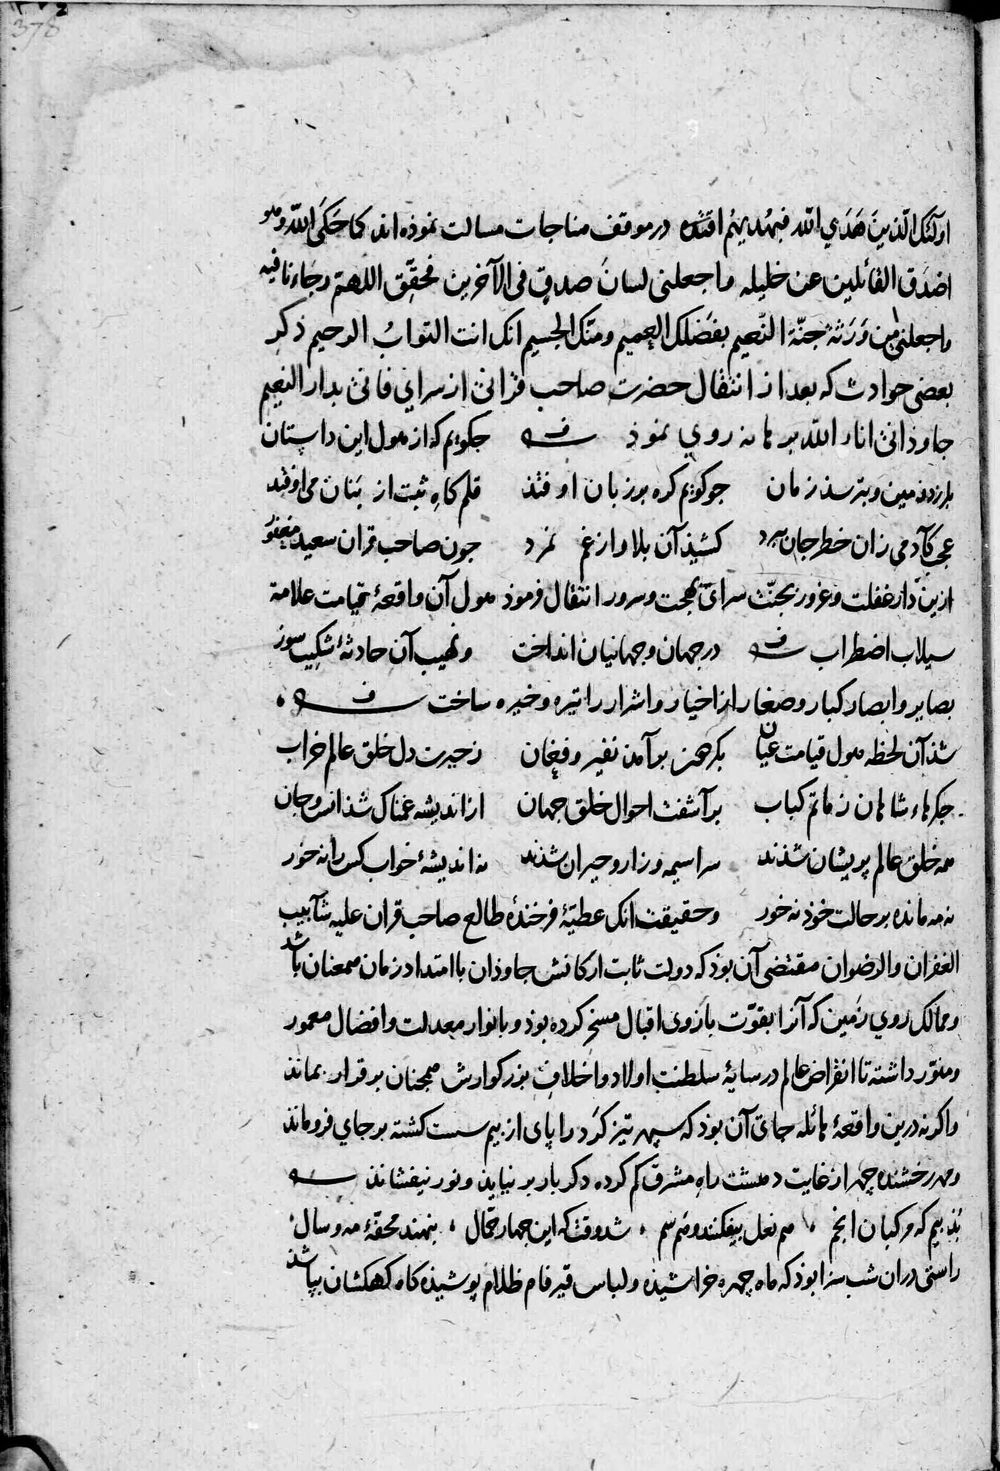 378
اولئک الذین هَدَي الله فبهُديهُم اقتَدِه در موقف مناجات مسالت نموذه اند کما حَکَی الله وهو
اصْدَق القائلین عن خلیله واجعلنی لسانَ صدقٍ فی الآخرین فحَقِّق اللهم رجاءنا فیه
واجعلنی مِن وَرَثَهٔ جنّة النّعیم بفَضلک العمیم ومنّک الجسیم انک انت التوابُ الرحیم ذکرِ
بعضی حوادث که بعد از انتقال حضرت صاحب قرانی از سراي فانی بدار النعیم
جاوذانی انار الله برهانه روي نموذ چکویم که از هول این داستان
بلرزد زمین و بترسذ زمان چو کویم کره بر زبان اوفتذ قلم کاهِ ثبت از بَنان می اوفتد
عجب کآدمی زان خطر جان ببرد کشیذ آن بلا و از غم نمرد چون صاحب قران سعید مغفور
ازین دار غفلت وغرور بجنّت سرای بهجت وسرور انتقال فرموذ هول آن واقعهٔ قیامت علامة
سیلاب اضطراب در جهان و جهانیان انداخت و نهیب آن حادثهٔ شکیب سوز
بصایر وابصار کبار وصغار از اخیار واشرار را تیره وخیره ساخت
شذ آن لحظه هول قیامت عیان بکرصحن برآمذ نفیر وفغان ز حیرت دل خلق عالم خراب
جکرهاء شاهان ز ماتم کباب برآشفت احوال خلق جهان از اندیشه غمناک شذ انس وجان
همه خلق عالم پریشان شذند سراسیمه و زار وحیران شذند نه اندیشهٔ خواب کس را نه خور
نه مه مانده بر حالت خوذ نه خور وحقیقت انک عطیّهٔ فرخندهٔ طالع صاحب قران علیه شآبیب
الغفران والرضوان مقتضی آن بوذ که دولت ثابت ارکانش جاوذان با امتداد زمان همعنان باشد
وممالک روي زمین که آنرا بقوّت بازوی اقبال مسخر کرده بوذ و بانوار معدلت وافضال معمور
ومنوّر داشته تا انقراض عالم در سایهٔ سلطنت اولاد واخلافِ بزرکوارش همچنان برقرار بماند
واکرنه درین واقعهٔ هائله جای آن بوذ که سپهر تیز کرد را پای از بیم سست کشته بر جاي فروماند
ومهر رخشنده چهر از غایت دهشت راه مشرق کم کرده دکر بار بر نیاید ونور نیفشاند
بُذ بیم که مرکبان انجم هم نعل بیفکنند وهم سم شد وقت که این چهار حمّال بنهند محفهٔ مه و سال
راستی دران شب سزا بوذ که ماه چهره خراشیذه ولباس قیر فام ظلام پوشیذه کاه کهکشان بپاشد